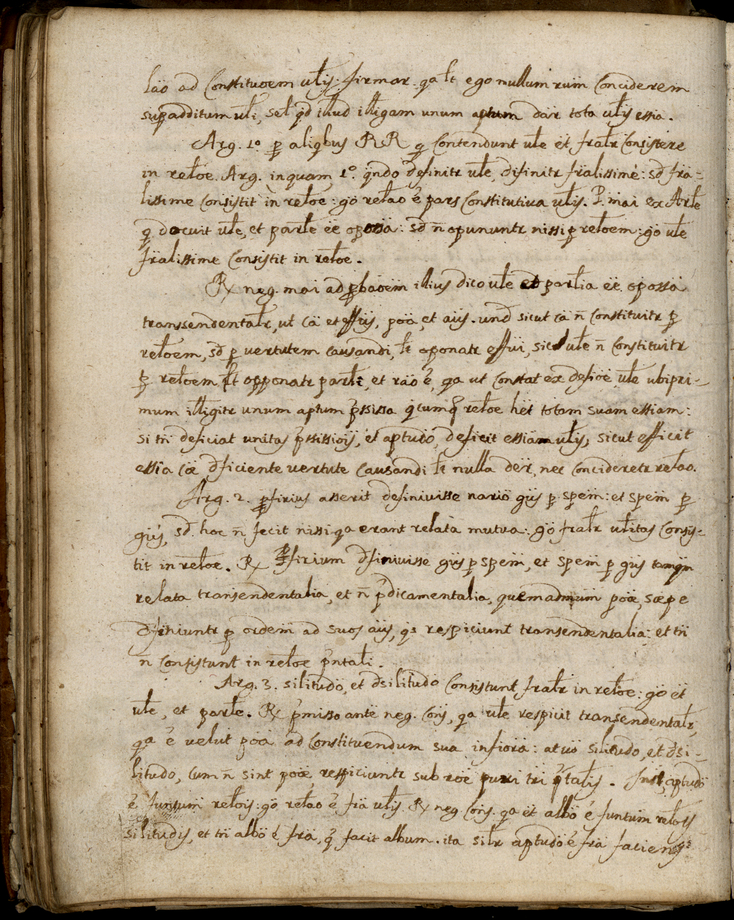 lão ad Constituoem ulis: firmar. qa lt ego nullum rum Conciderem
supadditum uli, sel qd illud illigam unum aptum dar tota ulis essia.
Arg. 1º p aliqbus RR q Contendunt ule et fralr Consistere
in reloe. Arg. inquam 1º. qndo definitr ule, difinitr fralissime: sd fra-
lissime Consistit in reloe: go relao é pars Constitutiva ulis. P. mai ex Arle
q docuit ule, et parle ée oposa: sd ñ opununtr nissi p reloem: go ule
fralissime Consistit in reloe.
Rx neg. mai ad pbaoem illius dico ule et parlia ée oposa
transsendentalr, ut cä et effus, poä, et aüs. und sicut ca ñ Constituitr p
reloem, sd p vertutem Causandi, lt oponatr effui, sic ule ñ Constituitr
p reloem lt opponatr parli, et rão é, qa ut Constat ex defioe ule ubipri-
mum illigitr unum aptum pssissa qcumq reloe hët totam suam essiam:
si tñ deficiat unitas pssissiois, et aptudo, deficit essiam ulis, sicut efficit
essia cæ dficiente vertute Causandi lt nulla der, nec Concideretr relao.
Arg. 2. pfirius asserit definivisse nario güs p spem: et spem p
güs, sd hoc ñ fecit nissi qa erant relata mutua: go fralr ulitas Consis-
tit in reloe. Rx Pfirium dfinivisse güs p spem, et spem p gus tamqm
relata transendentalia, et ñ pdicamentalia, quemadmum poæ, sæpe
dfiniuntr p ordem ad suos aüs, qs respiciunt transendentalia: et tñ
ñ Consistunt in reloe pntali.
Arg. 3. silitudo, et dsilitudo Consistunt fralr in reloe: go et
ule, et parle. Rx pmisso ante neg. Cons, qa ule respicit transendentalr,
qa é velut poä ad Constituendum sua infiora: at vo silitudo, et dsi-
litudo, Cum ñ sint poæ respiciuntr sub roe puri tri qtalis. Inst, aptudo
é funtum relois: go relao é fra ulis. Rx neg Cons. qa et albo é funtum relois
silitudis, et tñ albo é frä, q facit album. ita silr aptudo é frä faciens